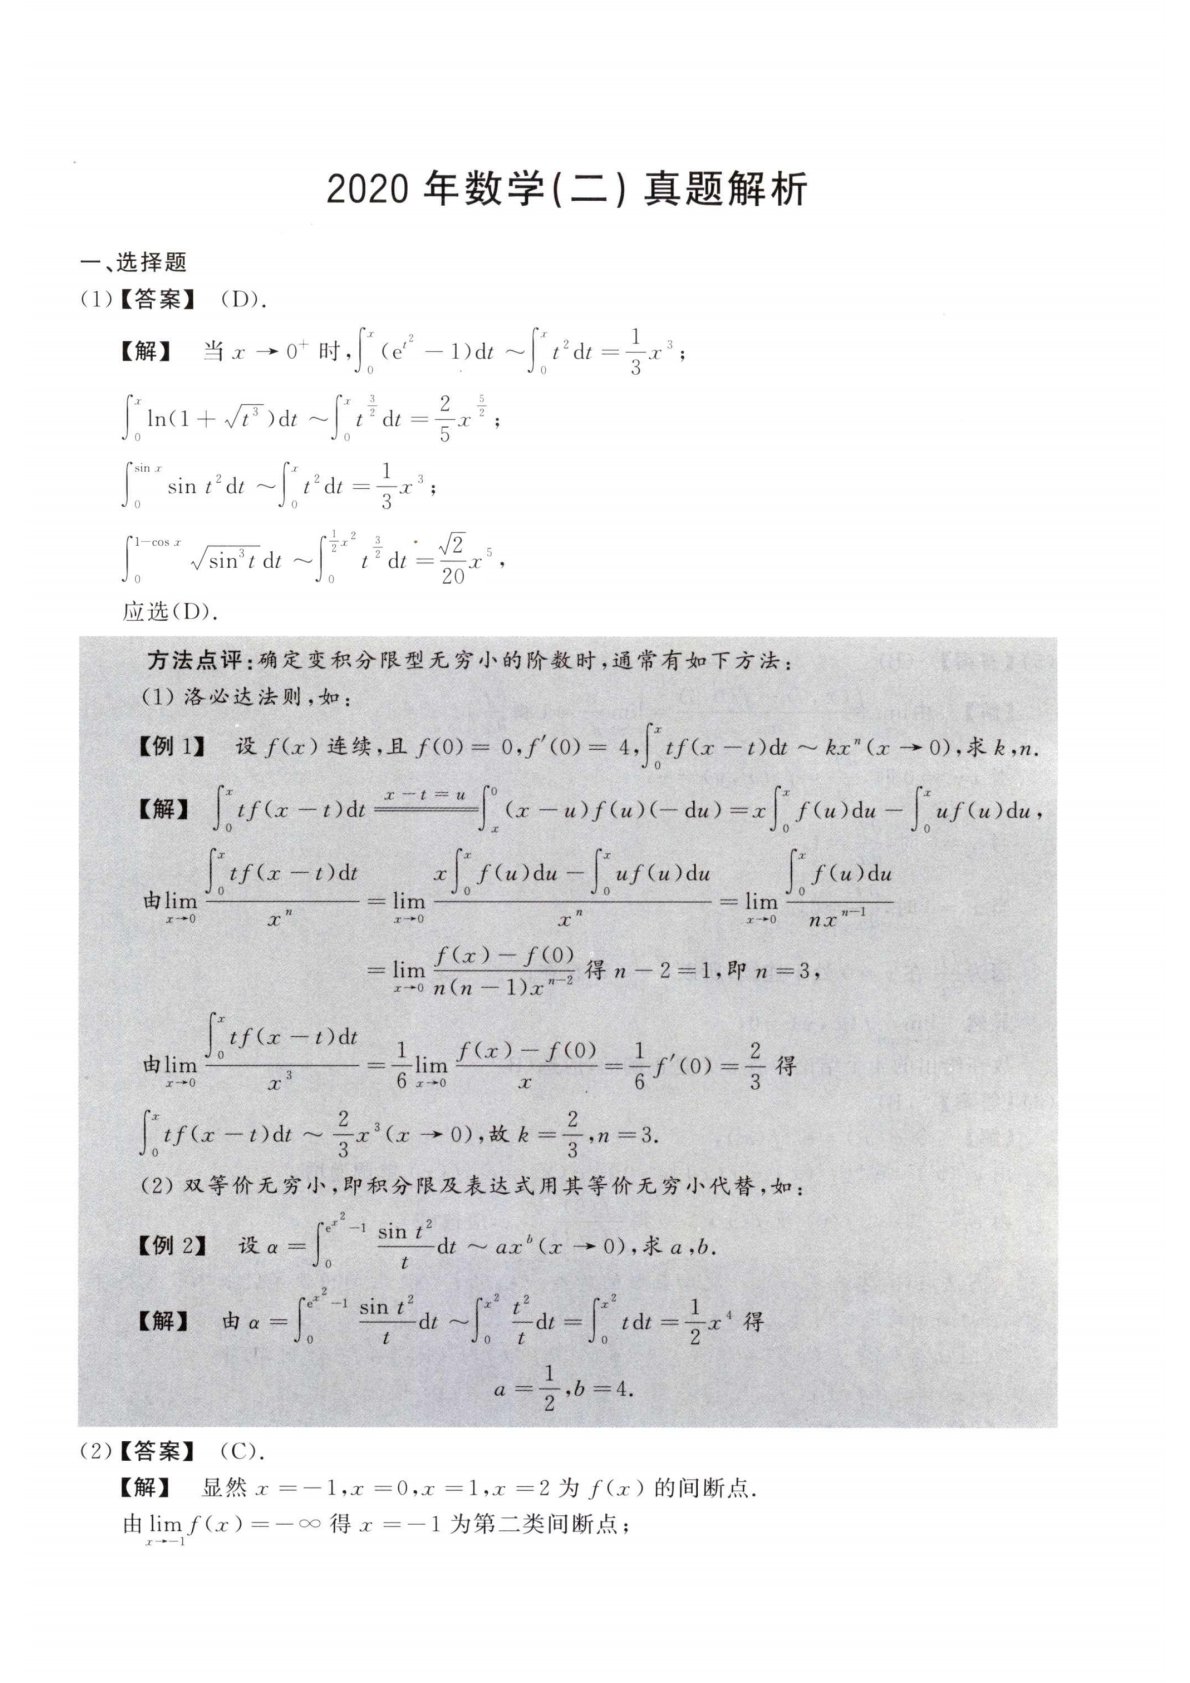 2020 年数学(二) 真题解析
一、选择题
(1)【答案】 (D).
【解】 当 $x \to 0^+$ 时,$\int_0^x (e^{t^2}-1)dt \sim \int_0^x t^2 dt = \frac{1}{3}x^3$;
$\int_0^x \ln(1+\sqrt{t^3})dt \sim \int_0^x t^{\frac{3}{2}}dt = \frac{2}{5}x^{\frac{5}{2}}$;
$\int_0^{\sin x} \sin t^2 dt \sim \int_0^x t^2 dt = \frac{1}{3}x^3$;
$\int_0^{1-\cos x} \sqrt{\sin^3 t}\,dt \sim \int_0^{\frac{1}{2}x^2} t^{\frac{3}{2}}dt = \frac{\sqrt{2}}{20}x^5$,
应选(D).
方法点评:确定变积分限型无穷小的阶数时,通常有如下方法:
(1) 洛必达法则,如:
【例 1】 设 $f(x)$ 连续,且 $f(0)=0,f'(0)=4,\int_0^x tf(x-t)dt \sim kx^n(x \to 0)$,求 $k,n$.
【解】 $\int_0^x tf(x-t)dt \xlongequal{x-t=u} \int_x^0 (x-u)f(u)(-du) = x\int_0^x f(u)du - \int_0^x uf(u)du$,
由 $\lim_{x \to 0} \frac{\int_0^x tf(x-t)dt}{x^n} = \lim_{x \to 0} \frac{x\int_0^x f(u)du - \int_0^x uf(u)du}{x^n} = \lim_{x \to 0} \frac{\int_0^x f(u)du}{nx^{n-1}}$
$= \lim_{x \to 0} \frac{f(x)-f(0)}{n(n-1)x^{n-2}}$ 得 $n-2=1$,即 $n=3$,
由 $\lim_{x \to 0} \frac{\int_0^x tf(x-t)dt}{x^3} = \frac{1}{6}\lim_{x \to 0} \frac{f(x)-f(0)}{x} = \frac{1}{6}f'(0) = \frac{2}{3}$ 得
$\int_0^x tf(x-t)dt \sim \frac{2}{3}x^3(x \to 0)$,故 $k=\frac{2}{3},n=3$.
(2) 双等价无穷小,即积分限及表达式用其等价无穷小代替,如:
【例 2】 设 $\alpha = \int_0^{e^{x^2}-1} \frac{\sin t^2}{t}dt \sim ax^b(x \to 0)$,求 $a,b$.
【解】 由 $\alpha = \int_0^{e^{x^2}-1} \frac{\sin t^2}{t}dt \sim \int_0^{x^2} \frac{t^2}{t}dt = \int_0^{x^2} tdt = \frac{1}{2}x^4$ 得
$a=\frac{1}{2},b=4$.
(2)【答案】 (C).
【解】 显然 $x=-1,x=0,x=1,x=2$ 为 $f(x)$ 的间断点.
由 $\lim_{x \to -1} f(x) = -\infty$ 得 $x=-1$ 为第二类间断点;